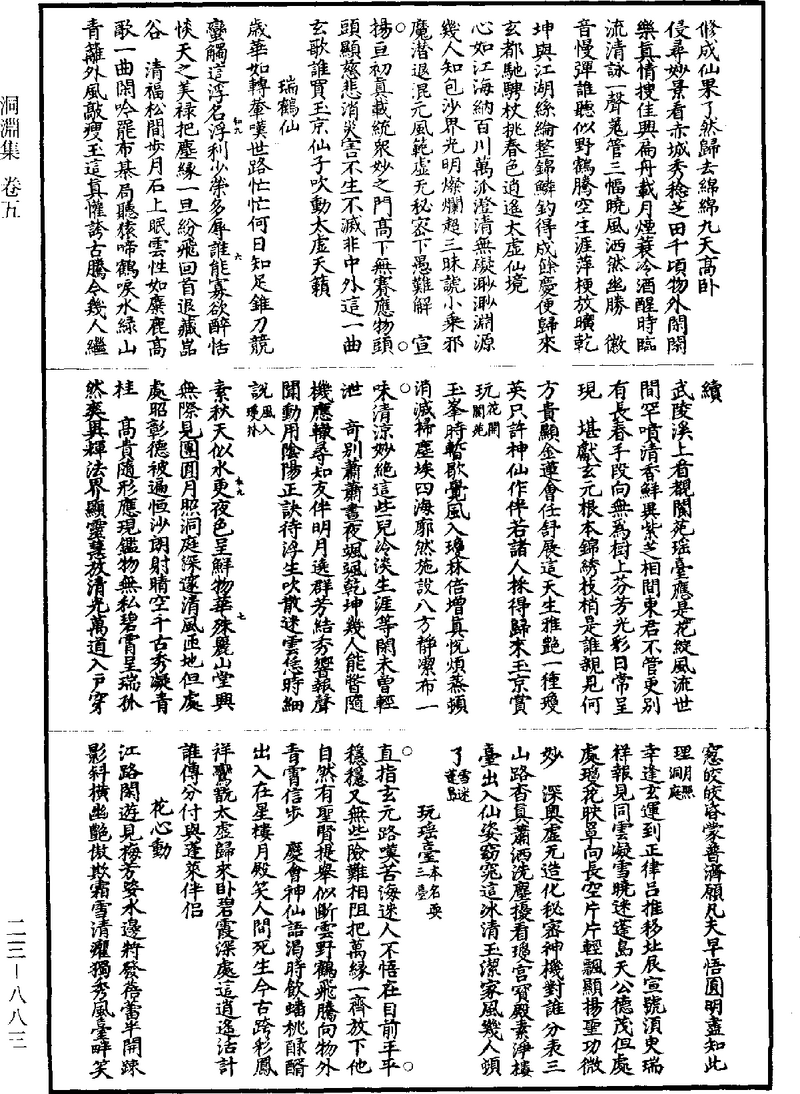 修成仙果了然歸去綿綿九天高卧
侵尋妙景看赤城秀稔芝田千頃物外閑閑
樂真情搜佳興扁舟載月煙蓑冷酒醒時臨
流清詠一聲菟管三幅曉風洒然幽勝　徽
音慢彈誰聽似野鶴騰空生涯萍梗放曠乾
坤與江湖絲綸整錦鱗鈞得成餘慶便歸來
玄都馳騁杖挑春色逍遙太虛仙境
心如江海納百川萬派澄清無礙渺渺淵源
幾人知包沙界光明燦爛超三昧說小乘邪
魔潜退混元風範虛无秘密下愚難解　宣
揚亘初真載統衆妙之門高下無賽應物頭
頭顯慈悲消災害不生不滅非中外這一曲
玄歌誰買玉京仙子吹動太虛天籟
瑞鶴仙
歲華如轉轂嘆世路忙忙何日知足錐刀競
蠻觸這浮名浮利少榮多辱誰能寡欲醉恬
惔天之美禄把塵緣一旦紛飛回首退藏嵓
谷　清福松間步月石上眠雲性如麋鹿高
歌一曲閑吟罷布棊局聽猿啼鶴唳水緑山
青籬外風敲瘦玉這真懽誇古騰今幾人繼
續
武陵溪上看覩閬苑瑶臺應是花綻風流世
間罕噴清香鮮與紫芝相間東君不管更別
有長春手段向無為樹上芬芳光彩日常呈
現　堪獻玄元根本錦綉枝梢是誰親見何
方貴顯金蓮會任舒展這天生雅艶一種瓊
英只許神仙作伴若諸人採得歸來玉京賞
玩花開閬苑
玉峯時暫歇覺風入瓊林倍增真悅煩蒸頓
消滅掃塵埃四海廓然施設八方静潔布一
味清涼妙絶這些兒冷淡生涯等閑未曾輕
泄　奇別蕭蕭晝夜颯颯乾坤幾人能瞥隨
機應轍尋知友伴明月遶群芳結秀響報聲
聞動用陰陽正訣待浮生吹散迷雲恁時細
說風入瓊林
素秋天似水更夜色呈鮮物華殊麗山堂興
無際見團圓月照洞庭深邃清風匝地但處
處昭彰德被遍恒沙朗射晴空千古秀凝青
桂　高貴隨形應現鑑物無私碧霄呈瑞孤
然爽異輝法界顯靈慧放清光萬道入戸穿
窓皎皎昏蒙普濟願凡夫早悟圓明盡知此
理月照洞庭
幸逢玄運到正律吕推移北辰宣號湏臾瑞
祥報見同雲凝雪曉迷蓬島天公德茂但處
處瓊花映草向長空片片輕飄顯揚聖功微
妙　深奥虛无造化秘密神機對誰分表三
山路杳真蕭洒洗塵擾看瓊宮寶殿素淨樓
臺出入仙姿窈窕這冰清玉潔家風幾人頓
了雪迷蓬島
玩瑶臺本名耍三臺
直指玄元路嘆苦海迷人不悟在目前平平
穩穩又無些險難相阻把萬緣一齊放下他
自然有聖賢提舉似斷雲野鶴飛騰向物外
青霄信步　慶會神仙語渴時飲蟠桃醁醑
出入在星樓月殿笑人間死生今古跨彩鳳
祥鸞翫太虛歸來卧碧霞深處這逍遙活計
誰傳分付與蓬萊伴侣
花心動
江路閑遊見梅芳姿水邊將發蓓蕾半開踈
影斜横幽艶傲欺霜雪清癯獨秀風臺畔笑
洞淵集　卷五
二三—八八三